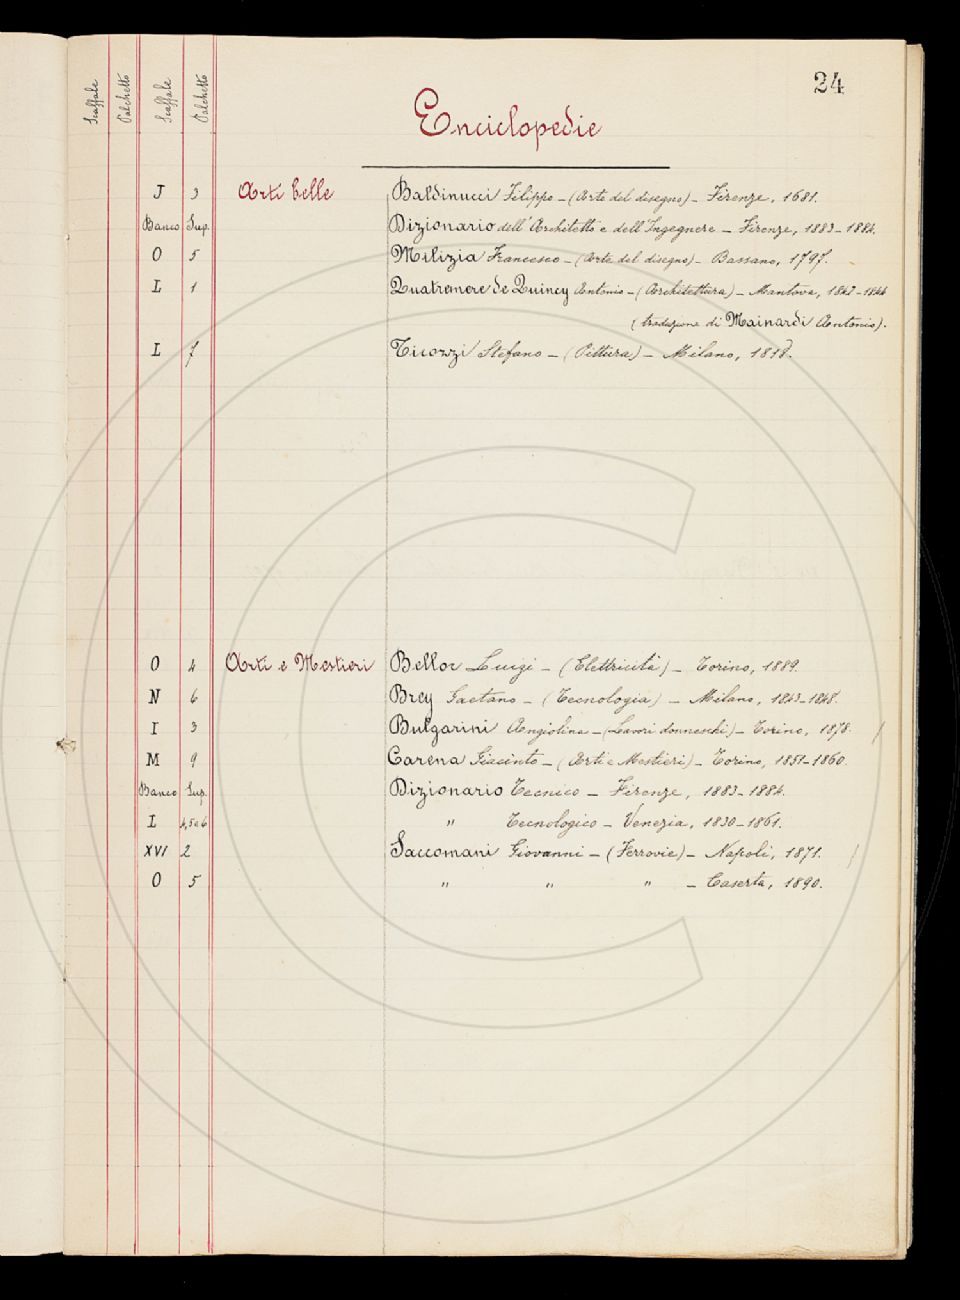 24
Scaffale Palchetto Scaffale Palchetto
Enciclopedie
J 3 Arti belle Baldinucci Filippo - (Arte del disegno) - Firenze, 1681.
Banco Sup. Dizionario dell'Architetto e dell'Ingegnere - Firenze, 1883-1884.
O 5 Milizia Francesco - (Arte del disegno) - Bassano, 1797.
L 1 Quatremere de Quincy Antonio - (Architettura) - Mantova, 1842-1844
(traduzione di Mainardi Antonio).
L 7 Ticozzi Stefano - (Pittura) - Milano, 1818.
O 4 Arti e Mestieri Bellor Luigi - (Elettricità) - Torino, 1889.
N 6 Brey Gaetano - (Tecnologia) - Milano, 1843-1848.
I 3 Bulgarini Angiolina - (Lavori donneschi) - Torino, 1878. /
M 9 Carena Giacinto - (Arti e Mestieri) - Torino, 1851-1860.
Banco Sup. Dizionario Tecnico - Firenze, 1883-1884.
L 4, 5 e 6 " Tecnologico - Venezia, 1830-1861.
XVI 2 Saccomani Giovanni - (Ferrovie) - Napoli, 1871. /
O 5 " " " - Caserta, 1890.